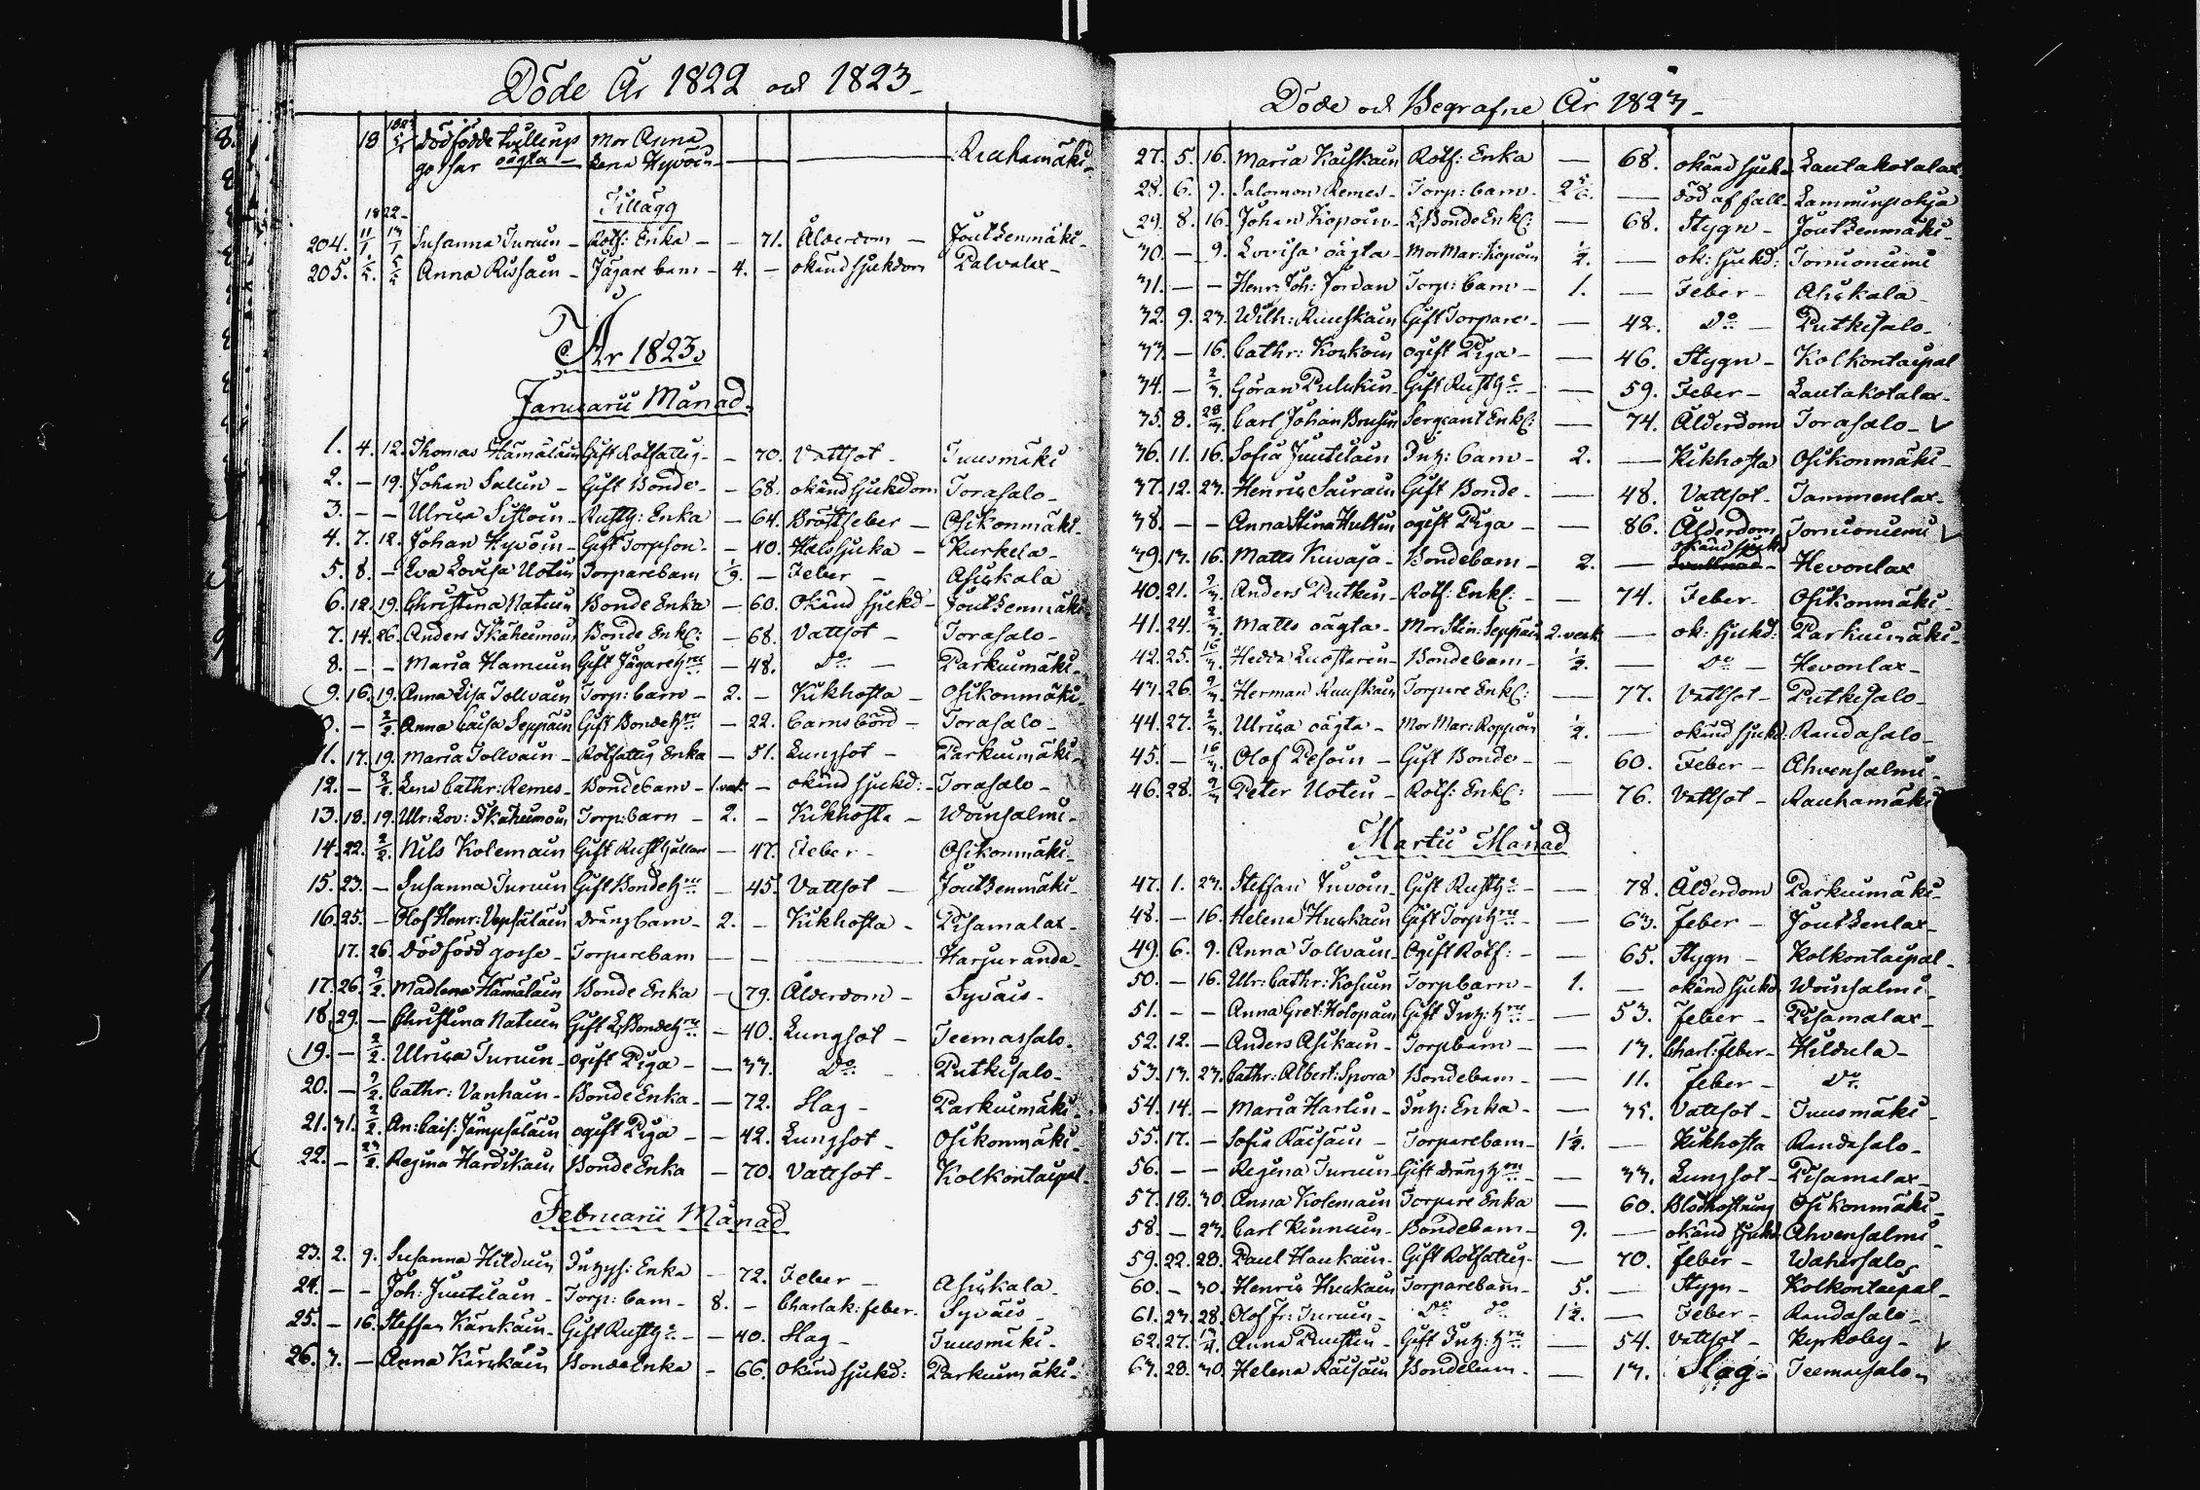 Döde År 1822 och 1823.
18 dödfödde tvillings Mor Anna
gossar oägta — Lena Hyvöin — Rauhamäki
Tillägg
1822.
204. 11/1 13/1 Susanna Turuin — Rotf: Enka — — 71. Ålderdom — Joutsenmäki.
205. Anna Rissain — Jägare barn — 4. — okänd sjukdom Palvalax —
År 1823.
Januarii Månad.
1. 4. 12. Thomas Hämäläin Gift Rotfattig — — 70. Vattsot — Tuusmäki
2. — 19. Johan Salin — Gift Bonde — — 68. okänd sjukdom Torasalo —
3. — — Ulrica Sistoin — Rustg: Enka — 64. Bröstfeber — Osikonmäki.
4. 7. 12. Johan Hyvöin — Gift Torpson — — 40. Halssjuka — Kurkela —
5. 8. — Eva Lovisa Uotin Torparebarn 1/2. — Feber — Asikkala
6. 12. 19. Christina Natuin Bonde Enka — 60. Okänd sjukd — Joutsenmäki
7. 14. 26. Anders Ikäheimoin Bonde Enkl: — 68. Vattsot — Torasalo —
8. — — Maria Hamuin Gift Jägarehru — 48. Do — Parkuimäki.
9. 16. 19. Anna Lisa Tollvain Torp: barn — 2. — Kikhosta — Osikonmäki
— 2/2. Anna Caisa Seppäin Gift Bondehru — 22. Barnsbörd — Torasalo —
11. 17. 19. Maria Tollvain — Rotfattig Enka — 51. Lungsot — Parkuimäki
12. — 2/2. Lena Cathr: Remes — Bondebarn — 1. vek — okänd sjukd: — Torasalo —
13. 18. 19. Ulr: Lov: Ikäheimoin Torp: barn — 2. — Kikhosta — Woinsalmi.
14. 22. 2/2. Nils Kolemain Gift Rusthållare — 47. Feber — Osikonmäki.
15. 23. — Susanna Turuin Gift Bondehru — 45. Vattsot — Joutsenmäki
16. 25. — Olof Henr: Vepsäläin drängbarn — 2. — Kikhosta — Pisamalax.
17. 26. Dödfödd gosse — Torparebarn — — — Harjuranda.
17. 26. 9/2. Madlena Hämäläin Bonde Enka — 79. Ålderdom — Syväis —
18. 29. — Christina Natuin Gift L: Bondehru — 40. Lungsot — Teemassalo.
19. — 2/2. Ulrica Turuin — ogift Piga — — 33. Do — Putkisalo.
20. — 9/2. Cathr: Vanhain — Bonde Enka — — 72. Slag — Parkuimäki
21. 31. 2/2. An: Cais: Jämpsäläin ogift Piga — — 42. Lungsot — Osikonmäki.
22. — 23/2 Regina Hardikain Bonde Enka — 70. Vattsot — Kolkontaipal.
Februarii Månad
23. 2. 9. Susanna Hilduin Inhys: Enka — 72. Feber — Asikkala
24. — — Joh: Juutilain — Torp: barn — 8. — Charlak: feber. Syväis —
25. — 16. Steffan Kärkkäin — Gift Rusth: — — 40. Slag — Tuusmäki.
26. 3. — Anna Kärkkäin Bonde Enka — 66. Okänd sjukd: Parkuimäki.
Döde och Begrafne År 1823.
27. 5. 16. Maria Kauskain Rotf: Enka — 68. okänd sjukd Lautakotalax
28. 6. 9. Salomon Remes — Torp: barn — — död af fall Lamminpohja
29. 8. 16. Johan Kopoin — L: Bonde Enkl: — 68. Stygn — Joutsenmäki.
30. — 9. Lovisa oägta — Mor Mar: Kopoin 1/2. — ok: sjukd: Tornioniemi
31. — — Henr: Joh: Jordan Torp: barn — 1. — Feber — Asikkala
32. 9. 23. Wilh: Ruuskain Gift Torpare — — 42. Do — Putkisalo.
33. — 16. Cathr: Korkoin ogift Piga — — 46. Stygn — Kolkontaipal
34. — 2/3. Göran Pulckin — Gift Rusth: — 59. Feber — Lautakotalax.
35. 8. 28/3. Carl Johan Brusin Sergeant Enkl: — 74. Ålderdom Torasalo —
36. 11. 16. Sofia Juutilain Inh: barn — 2. — Kikhosta Osikonmäki.
37. 12. 23. Henric Sairain Gift Bonde — — 48. Vattsot — Tammenlax.
38. — — Anna Stina Hultin ogift Piga — — 86. Ålderdom Tornioniemi
39. 13. 16. Matts Kuvaja — Bondebarn — 2. — okänd sjukd Hevonlax
40. 21. 2/3. Anders Putkin — Rotf: Enkl: — 74. Feber — Osikonmäki.
41. 24. 2/3. Matts oägta — Mor Stin: Seppäin 2. veck — ok: sjukd: Parkuimäki.
42. 25. 16/3. Hedda Luostarin — Bondebarn — 1/2. — Do — Hevonlax —
43. 26. 2/3. Herman Ruuskain Torpare Enkl: — 77. Vattsot — Putkisalo
44. 27. 2/3. Ulrica oägta — Mor Mar: Roppoin 1/2. — okänd sjukd: Randasalo.
45. — 16/3. Olof Pesoin — Gift Bonde — — 60. Feber — Ahvensalmi.
46. 28. 9/3. Peter Uotin — Rotf: Enkl: — 76. Vattsot — Rauhamäki
Martii Månad
47. 1. 23. Steffan Juvoin — Gift Rusth: — — 78. Ålderdom Parkuimäki.
48. — 16. Helena Huskain Gift Torphru — 63. Feber — Joutsenlax
49. 6. 9. Anna Tollvain — Ogift Rotf: — — 65. Stygn — Kolkontaipal.
50. — 16. Ulr: Cathr: Kosuin Torpbarn — 1. — okänd sjukd Woinsalmi.
51. — — Anna Gret: Holopain Gift Inh: hru — 53. Feber — Pisamalax
52. 12. — Anders Asikain — Torpbarn — — 13. Charl: feber — Hildula —
53. 13. 23. Cathr: Albert: Spora Bondebarn — — 11. Feber — Do
54. 14. — Maria Harlin — Inh: Enka — — 75. Vattsot — Tuusmäki
55. 17. — Sofia Räisäin — Torparebarn — 1 1/2. — Kikhosta Randasalo.
56. — — Regina Turuin — Gift dränghru — 33. Lungsot — Pisamalax
57. 18. 30. Anna Kolemain Torpare Enka — 60. Blodhostning Osikonmäki
58. — 23. Carl Kinnuin — Bondebarn — 9. — okänd sjukd Ahvensalmi
59. 22. 28. Paul Haukain — Gift Rotfattig — — 70. Feber — Wahersalo
60. — 30. Henric Huskain Torparebarn — 5. — Stygn — Kolkontaipal
61. 23. 28. Olof Fr: Turuin — Do do 1 1/2. — Feber — Randasalo
62. 27. 13/4. Anna Puustin — Gift Inh: hru — 54. Vattsot — Kyrkoby —
63. 28. 30. Helena Räisäin Bondebarn — — 13. Slag — Teemassalo